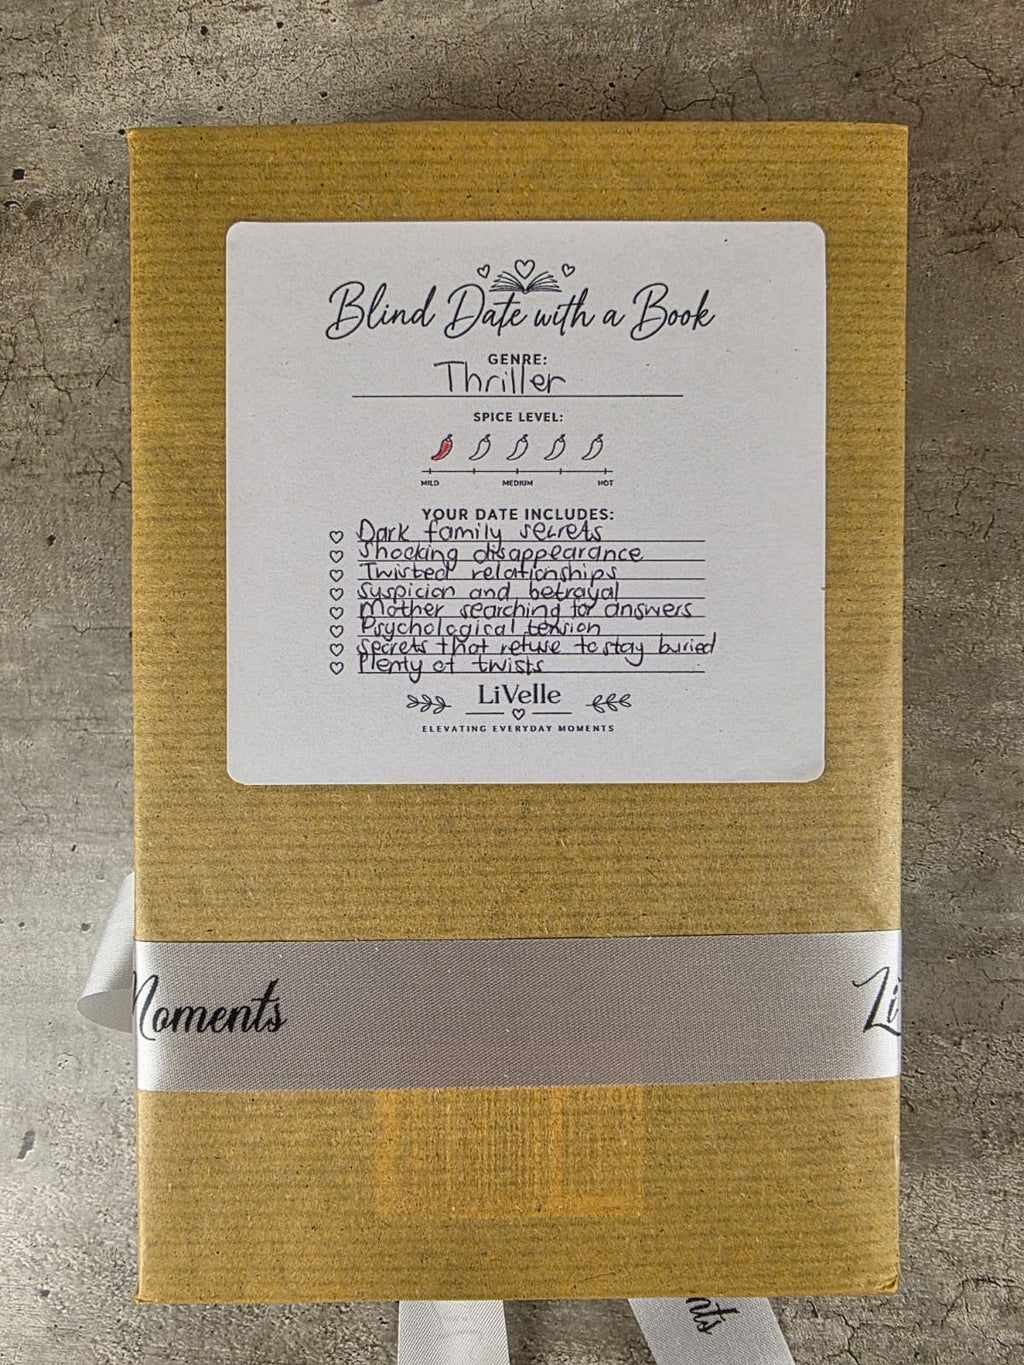 Blind Date with a Book
GENRE:
Thriller
SPICE LEVEL:
MILD MEDIUM HOT
YOUR DATE INCLUDES:
Dark family secrets
Shocking disappearance
Twisted relationships
Suspicion and betrayal
Mother searching for answers
Psychological tension
Secrets that refuse to stay buried
Plenty of twists
LiVelle
ELEVATING EVERYDAY MOMENTS
Moments Li
nts